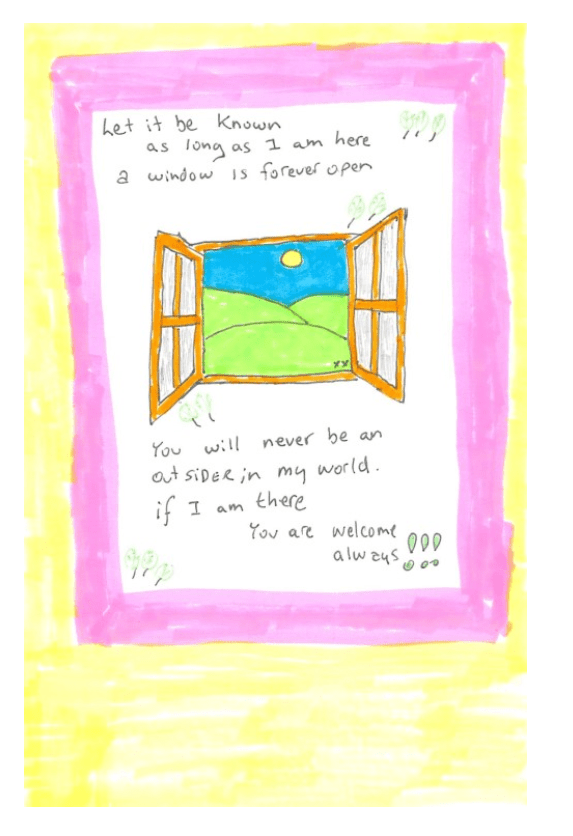 Let it be Known
as long as I am here
a window is forever open
You will never be an
outSiDER in my world.
if I am there
You are welcome
always!!!